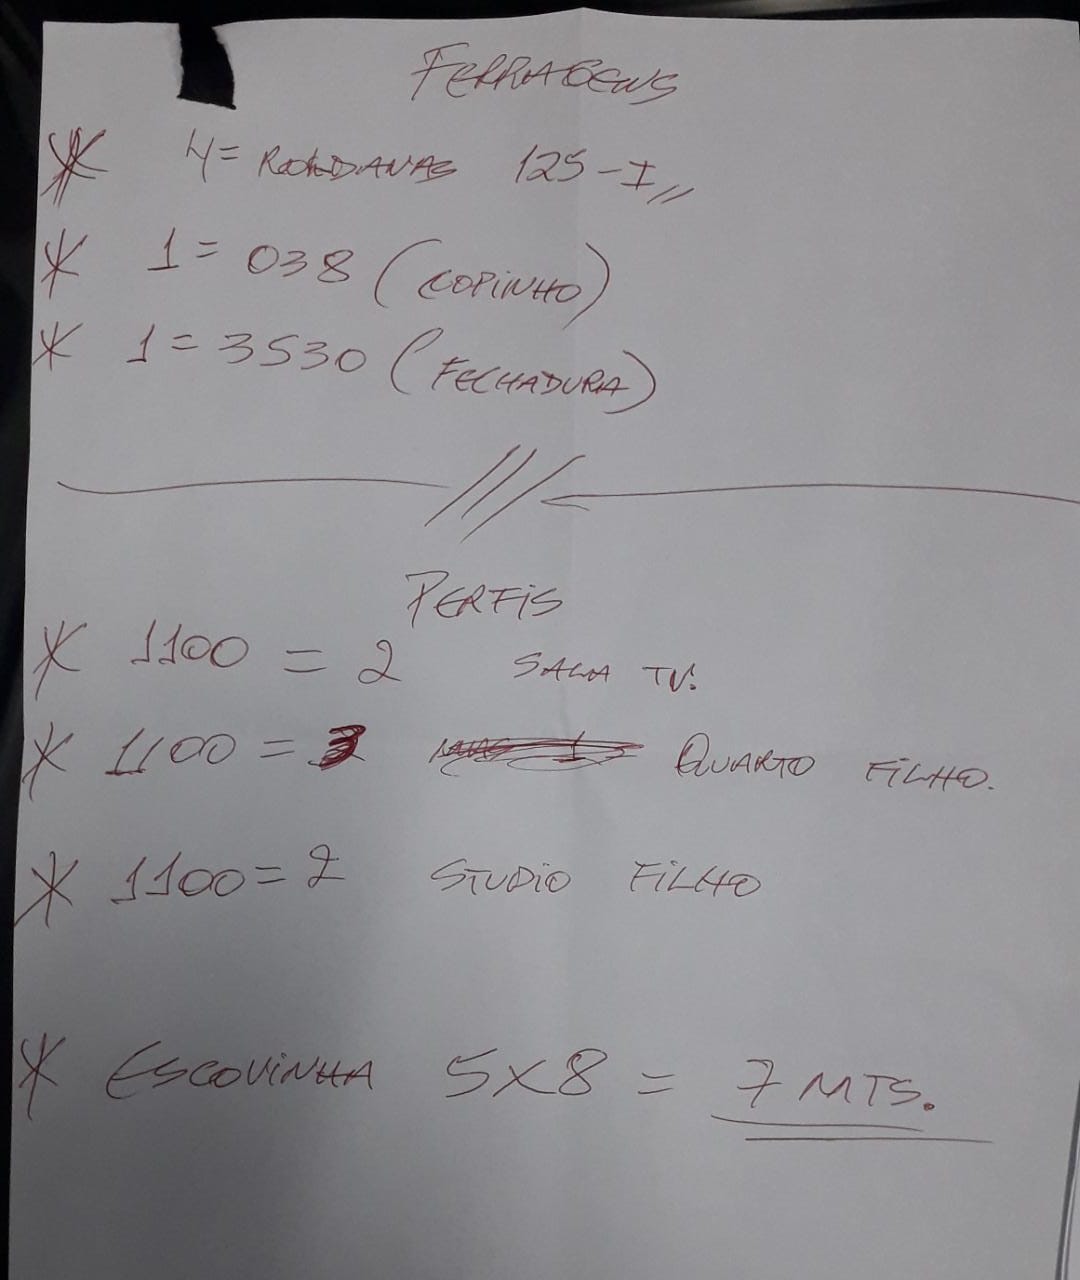 FERRAGENS
* 4= ROLDANAS 125-I,,
* 1= 038 (COPINHO)
* 1= 3530 (FECHADURA)
PERFIS
* 1100 = 2 SALA TV.
* 1100 = 3 QUARTO FILHO.
* 1100= 2 STUDIO FILHO
* ESCOVINHA 5X8 = 7 MTS.